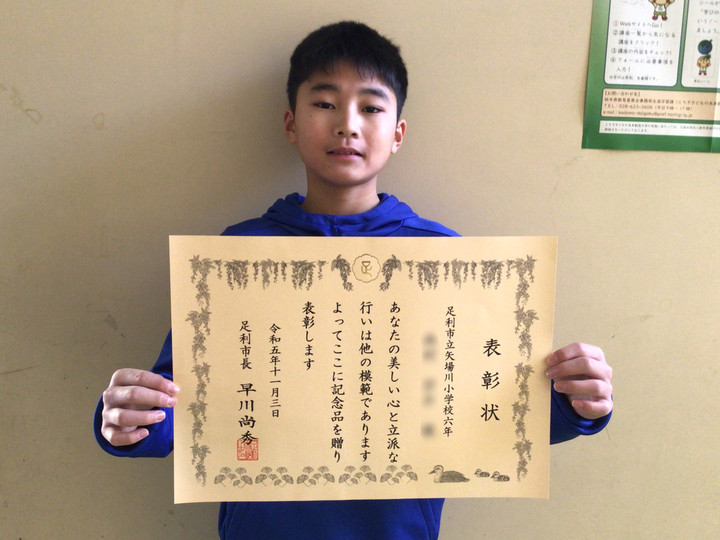 表彰状
足利市立矢場川小学校六年
あなたの美しい心と立派な
行いは他の模範であります
よってここに記念品を贈り
表彰します
令和五年十一月三日
足利市長 早川尚秀
①WebサイトへGo!
②講座一覧から気になる
講座をクリック!
③講座の内容をチェック!
④フォームに必要事項を
入力!